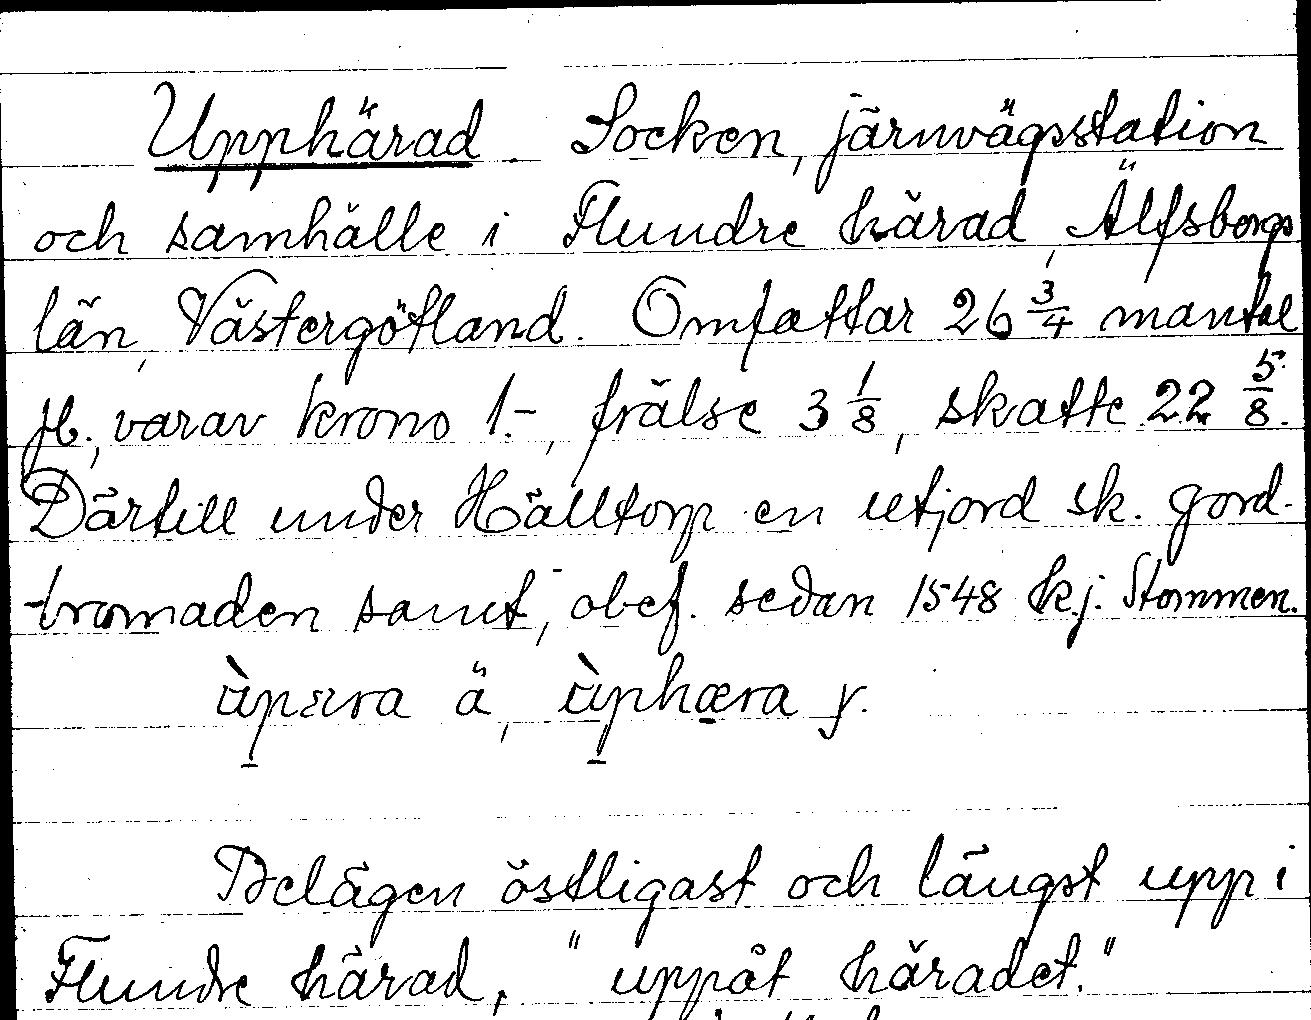 Upphärad. Socken, järnvägsstation
och samhälle i Flundre härad, Älfsborgs
län, Västergötland. Omfattar 26 3/4 mantal
jb., varav krono 1.-, frälse 3 1/8, skatte 22 5/8.
Därtill under Hälltorp en utjord sk. Gord-
tromaden samt, obef. sedan 1548 k.j. Stommen.
ä, y.
Belägen östligast och längst upp i
Flundre härad, "uppåt häradet."